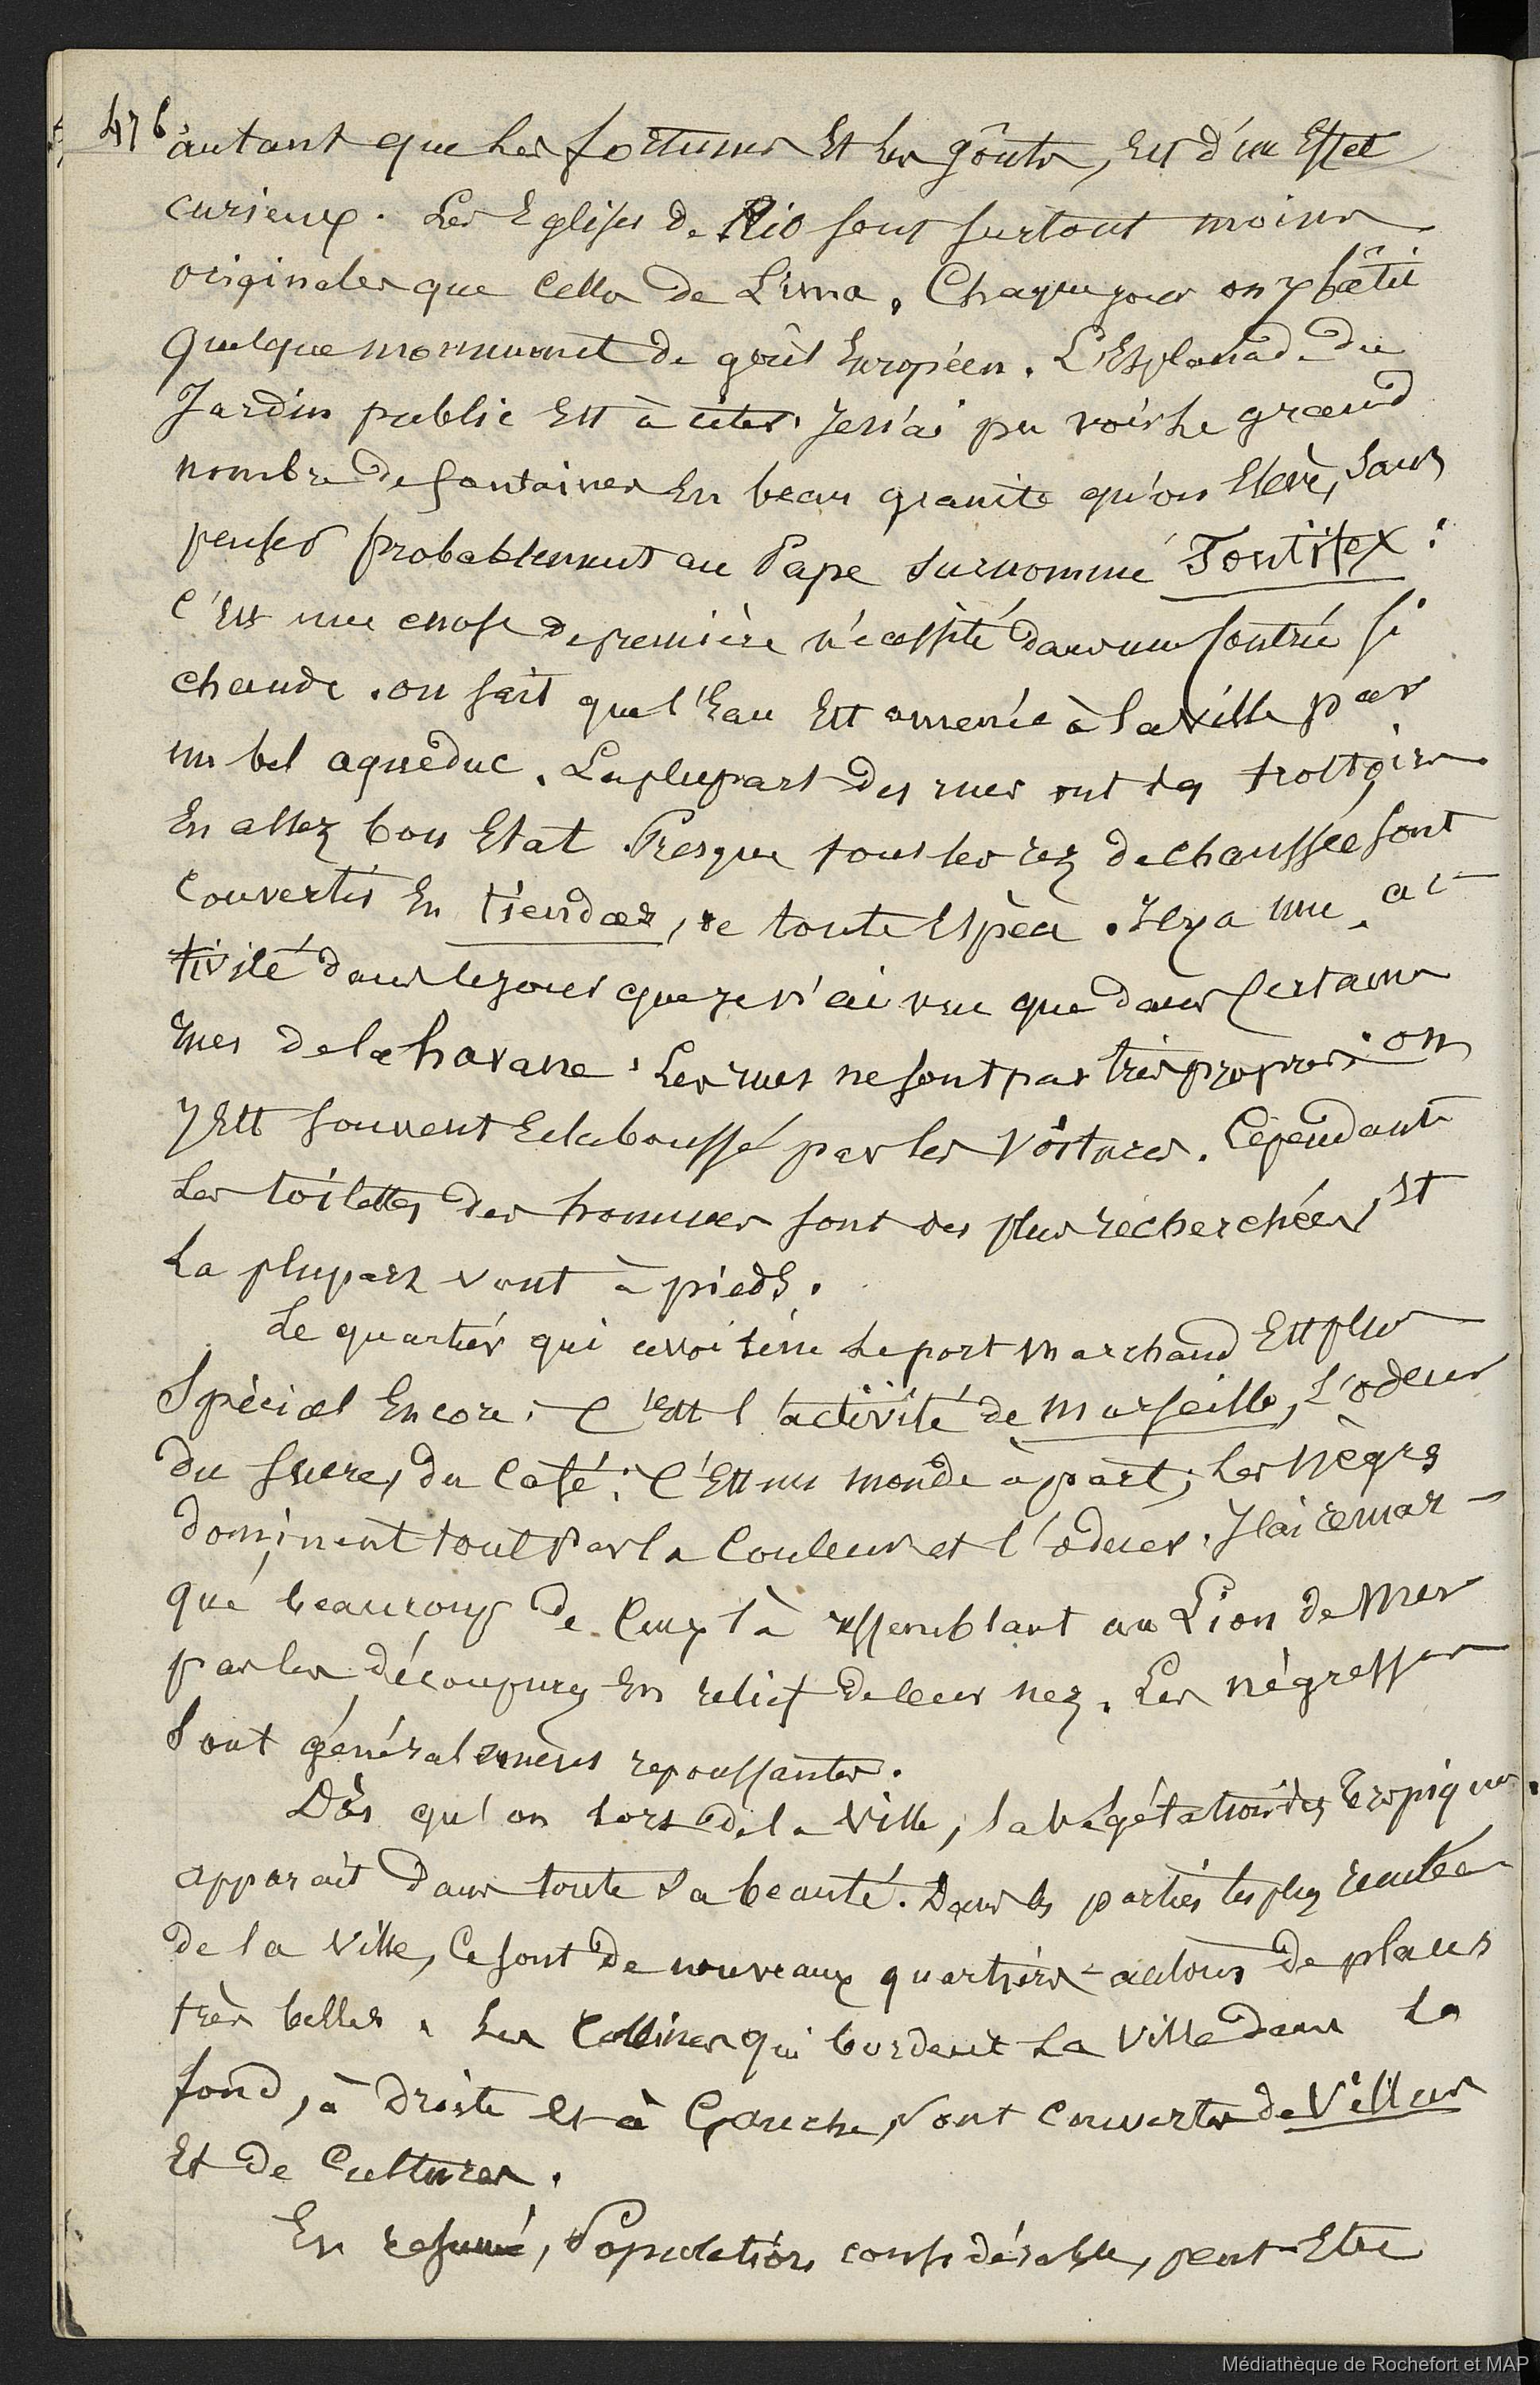 476.
autant que les fortunes Et les goûts, Est d'un Effet
curieux. Les Eglises de Rio sont surtout moins
originales que Celles de Lima. Chaque jour on y bâtit
quelque monument de goût Européen. L'Esplanade du
Jardin public Est à citer. Je n'ai pu voir le grand
nombre de fontaines En beau granite qu'on Elève, sans
penser probablement au Pape surnommé Fontifex:
C'Est une chose de première nécessité dans une Contrée si
chaude. on sait que l'Eau Est amenée à la ville par
un bel aqueduc. La plupart des rues ont des trottoirs
En assez bon Etat. Presque tous les rez de chaussée sont
Convertis En tiendas, de toute Espèce. Il y a une ac-
tivité dans le jour que je n'ai vue que dans Certaines
rues de la havane. Les rues ne sont pas très propres: on
y Est souvent Eclaboussé par les Voitures. Cependant
Les toilettes des hommes sont des plus recherchées, Et
La plupart vont à pieds.
Le quartier qui avoisine le port marchand Est plus
Spécial Encore; C'Est l'activité de Marseille, L'odeur
du Sucre, du Café; C'Est un monde à part; Les Nègres
dominent tout Par la Couleur et l'odeur. J'ai remar-
qué beaucoup de Ceux là ressemblant au Lion de Mer
par les découpures En relief de leur nez. Les négresses
Sont généralement repoussantes.
Dès qu'on sort de la Ville, la Végétation des tropiques
apparait dans toute sa beauté. Dans les parties les plus reculées
de la Ville, Ce sont de nouveaux quartiers autour de places
très belles. Les Collines qui bordent La Ville dans Le
fond, à Droite Et à Gauche, Sont Couvertes de Villas
Et de Cultures.
En resumé, Population considérable, peut Etre
Médiathèque de Rochefort et MAP